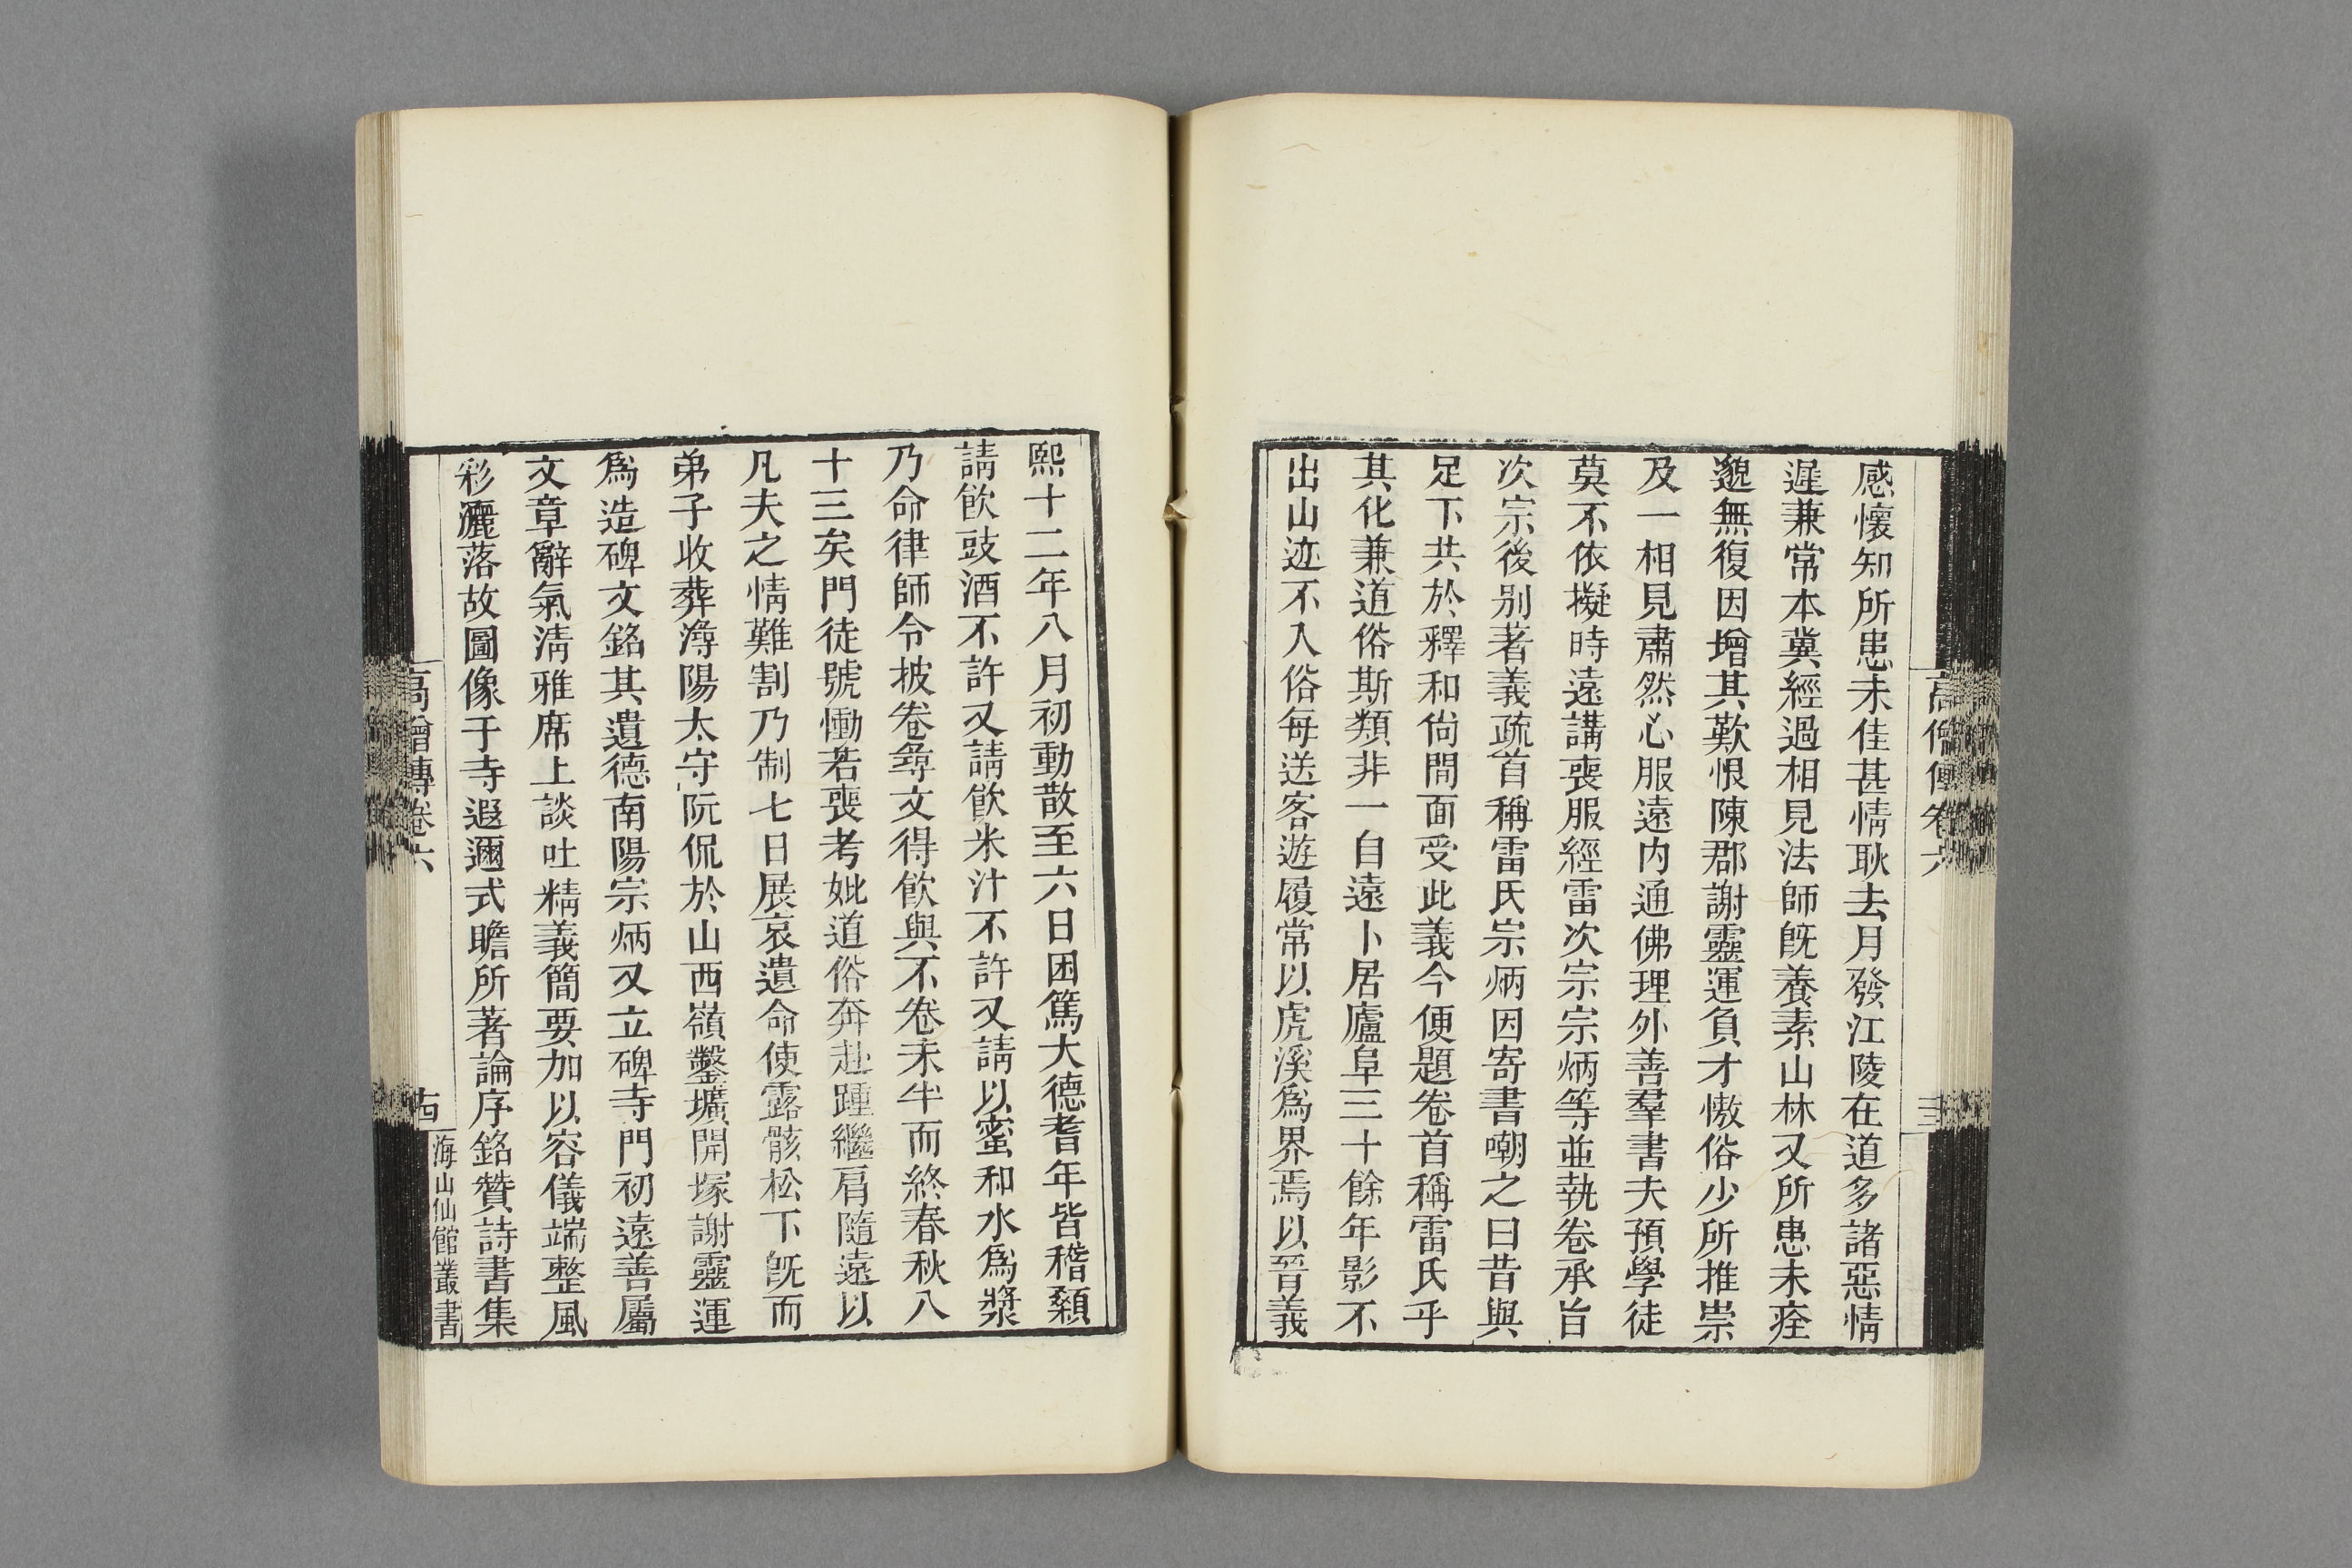 感懷知所患未佳甚情耿去月發江陵在道多諸惡情
遲兼常本冀經過相見法師旣養素山林又所患未痊
邈無復因增其歎恨陳郡謝靈運負才慠俗少所推崇
及一相見肅然心服遠内通佛理外善羣書夫預學徒
莫不依擬時遠講喪服經雷次宗宗炳等並執卷承旨
次宗後别著義疏首稱雷氏宗炳因寄書嘲之曰昔與
足下共於釋和尙間面受此義今便題卷首稱雷氏乎
其化兼道俗斯類非一自遠卜居廬阜三十餘年影不
出山迹不入俗每送客遊履常以虎溪爲界焉以晉義
熙十二年八月初動散至六日困篤大德耆年皆稽顙
請飮豉酒不許又請飮米汁不許又請以蜜和水爲漿
乃命律師令披卷尋文得飮與不卷未半而終春秋八
十三矣門徒號慟若喪考妣道俗奔赴踵繼肩隨遠以
凡夫之情難割乃制七日展哀遺命使露骸松下旣而
弟子收葬潯陽太守阮侃於山西嶺鑿壙開塚謝靈運
爲造碑文銘其遺德南陽宗炳又立碑寺門初遠善屬
文章辭氣淸雅席上談吐精義簡要加以容儀端整風
彩灑落故圖像于寺遐邇式瞻所著論序銘贊詩書集
高僧傳卷六
海山仙館叢書